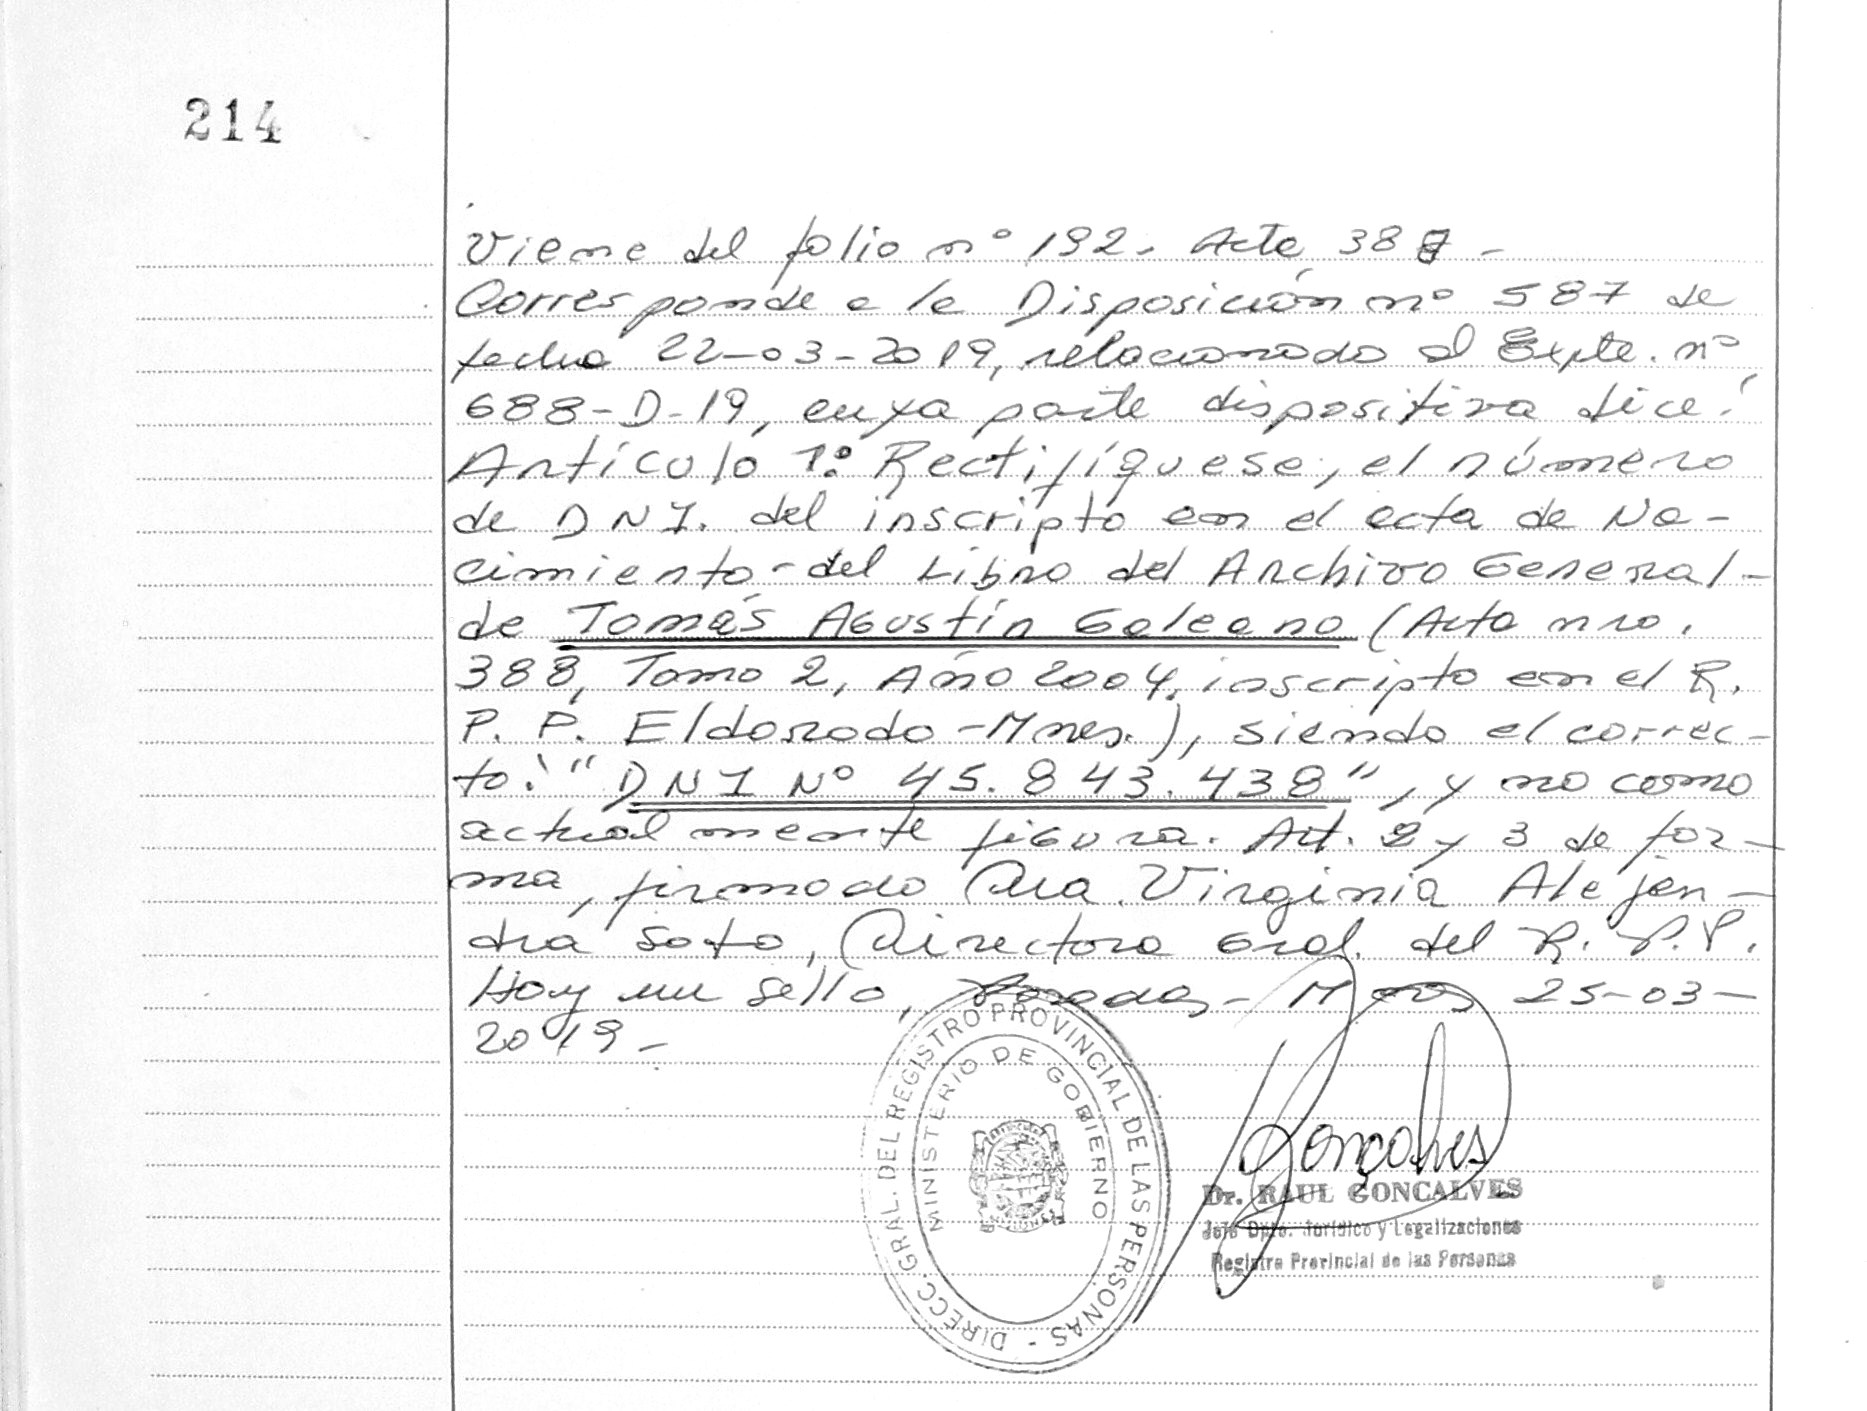 214
Viene del folio nº 192. Acta 388 -
Corresponde a la Disposición nº 587 de
fecha 22-03-2019, relacionado al Expte. nº
688-D-19, cuya parte dispositiva dice:
Artículo 1º: Rectifíquese, el número
de DNI. del inscripto en el acta de Na-
cimiento - del Libro del Archivo General -
de Tomás Agustín Galeano (Acta nro.
388, Tomo 2, Año 2004, inscripto en el R.
P. P. Eldorado - Mnes.), siendo el correc-
to: "DNI Nº 45.843.438", y no como
actualmente figura. Art. 2 y 3 de for-
ma, firmado Dra. Virginia Alejan-
dra Soto, Directora Gral. del R. P. P.
Hay un sello, Posadas - Mnes 25-03-
2019 -
DIRECC. GRAL. DEL REGISTRO PROVINCIAL DE LAS PERSONAS -
MINISTERIO DE GOBIERNO
Gonçalves
Dr. RAUL GONCALVES
Jefe Dpto. Jurídico y Legalizaciones
Registro Provincial de las Personas